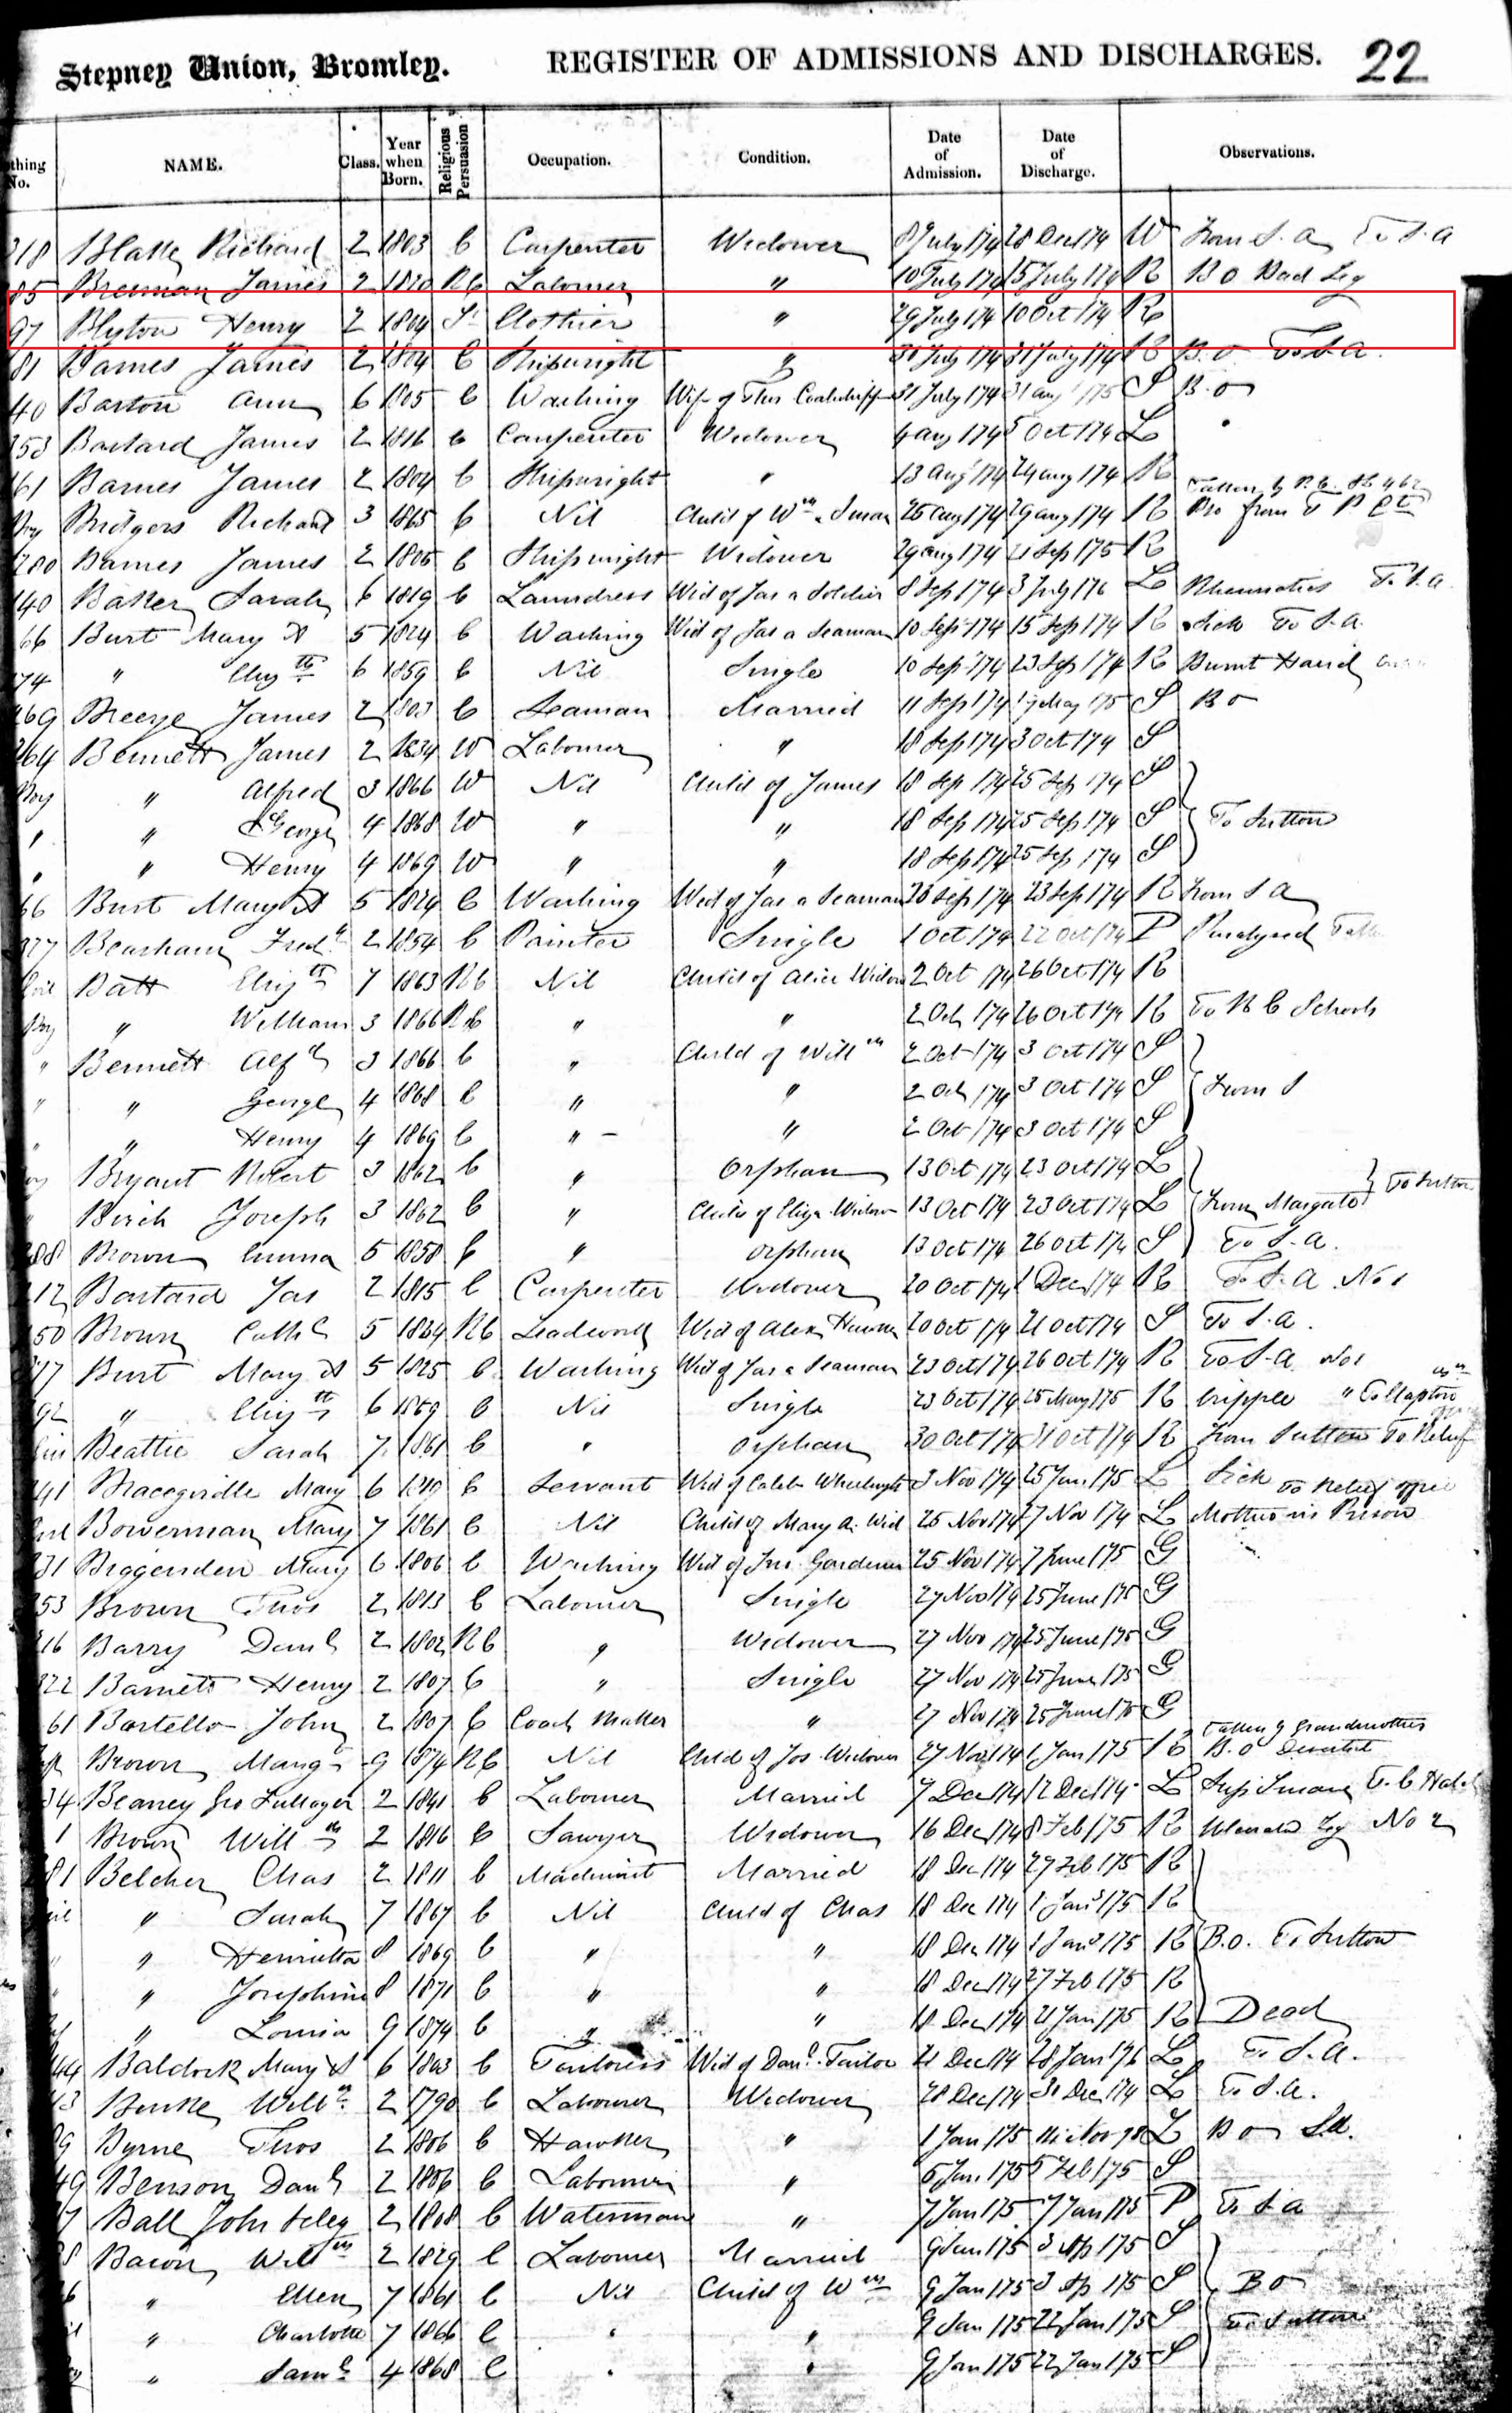 Stepney Union, Bromley. REGISTER OF ADMISSIONS AND DISCHARGES. 22
thing No. NAME. Class. Year when Born. Religious Persuasion Occupation. Condition. Date of Admission. Date of Discharge. Observations.
318 Blake Richard 2 1803 C Carpenter Widower 8 July /74 28 Dec /74 W From S.A To S.A
85 Brennan James 2 1820 RC Labourer " 10 July /74 15 July /74 R B O Bad Leg
97 Blyton Henry 2 1804 Clothier " 29 July /74 10 Oct /74 R
81 Barnes James 2 1804 C Shipwright " 30 July /74 31 July /74 R B.O To S.A.
40 Barton Ann 6 1805 C Washing Wife of Thos 31 July /74 31 Aug /75 S B.O
353 Bastard James 2 1816 C Carpenter Widower 4 Aug /74 5 Oct /74 L
161 Barnes James 2 1804 C Shipwright " 13 Aug /74 24 Aug /74 R
Boy Bridgers Richard 3 1865 C Nil Child of Wm & Susan 25 Aug /74 29 Aug /74 R Taken by P.C. Bro from
280 Barnes James 2 1805 C Shipwright Widower 29 Aug /74 21 Sep /75 R
140 Baker Sarah 6 1819 C Laundress Wid of Jas a Soldier 8 Sep /74 3 July /76 L Rheumatics To S.A
66 Burt Mary A 5 1824 C Washing Wid of Jas a Seaman 10 Sep /74 15 Sep /74 R Sick To S.A.
74 " Elizth 6 1859 C Nil Single 10 Sep /74 23 Sep /74 R Burnt Hand
269 Breeze James 2 1803 C Seaman Married 11 Sep /74 19 May /75 S B O
264 Bennett James 2 1834 W Labourer " 18 Sep /74 3 Oct /74 S
Boy " Alfred 3 1866 W Nil Child of James 18 Sep /74 25 Sep /74 S
" " George 4 1868 W " " 18 Sep /74 25 Sep /74 S To Sutton
" " Henry 4 1869 W " " 18 Sep /74 25 Sep /74 S
66 Burt Mary A 5 1824 C Washing Wid of Jas a Seaman 20 Sep /74 23 Sep /74 R From S A
377 Bearham Fredk 2 1854 C Painter Single 1 Oct /74 22 Oct /74 P Paralysed
Batt Elizth 7 1863 RC Nil Child of Alice Widow 2 Oct /74 26 Oct /74 R
Boy " William 3 1866 RC " " 2 Oct /74 26 Oct /74 R To R C Schools
" Bennett Alfd 3 1866 C " Child of Willm 2 Oct /74 3 Oct /74 S
" " George 4 1868 C " " 2 Oct /74 3 Oct /74 S From S
" " Henry 4 1869 C " " 2 Oct /74 3 Oct /74 S
Bryant Robert 3 1862 C " Orphan 13 Oct /74 23 Oct /74 L
Birch Joseph 3 1862 C " Child of Eliza Widow 13 Oct /74 23 Oct /74 L From Margate To Sutton
288 Brown Emma 5 1858 C " Orphan 13 Oct /74 26 Oct /74 S To S.A.
212 Bastard Jas 2 1815 C Carpenter Widower 20 Oct /74 1 Dec /74 R To S.A No 1
50 Brown Cathe 5 1824 RC Leadwork Wid of Alex 20 Oct /74 21 Oct /74 S To S.A.
77 Burt Mary A 5 1825 C Washing Wid of Jas a Seaman 23 Oct /74 26 Oct /74 R To S.A No 1
92 " Elizth 6 1859 C Nil Single 23 Oct /74 25 May /75 R Cripple " To Clapton
Beattie Sarah 7 1861 C " Orphan 30 Oct /74 31 Oct /74 R From Sutton To Relief
41 Bracegirdle Mary 6 C Servant Wid of Caleb Wheelwright 3 Nov /74 25 Jan /75 L Sick To Relief Office
Bowerman Mary 7 1861 C Nil Child of Mary A. Wid 25 Nov /74 27 Nov /74 L Mother in Prison
331 Biggenden Mary 6 1806 C Washing Wid of Jno Gardener 25 Nov /74 7 June /75 G
253 Brown Thos 2 1813 C Labourer Single 27 Nov /74 25 June /75 G
216 Barry Danl 2 1802 RC " Widower 27 Nov /74 25 June /75 G
322 Barnett Henry 2 1807 C " Single 27 Nov /74 25 June /75 G
61 Bartello John 2 1807 C Coach Maker " 27 Nov /74 25 June /75 G
Brown Margt 9 1874 RC Nil Child of Jos Widower 27 Nov /74 1 Jan /75 R Taken by Grandmother B.O Deserted
34 Beaney Geo Fullager 2 1841 C Labourer Married 7 Dec /74 12 Dec /74 L
1 Brown Willm 2 1816 C Sawyer Widower 16 Dec /74 8 Feb /75 R Ulcerated Leg No 2
81 Belcher Chas 2 1811 C Machinist Married 18 Dec /74 27 Feb /75 R
" Sarah 7 1867 C Nil Child of Chas 18 Dec /74 1 Jany /75 R
" " Henrietta 8 1869 C " " 18 Dec /74 1 Jany /75 R B.O. To Sutton
" " Josephine 8 1871 C " " 18 Dec /74 27 Feb /75 R
" Louisa 9 1874 C " " 18 Dec /74 21 Jan /75 R Dead
44 Baldock Mary A 6 1803 C Tailoress Wid of Danl Tailor 21 Dec /74 28 Jan /76 L To S.A.
13 Burke Willm 2 1790 C Labourer Widower 28 Dec /74 30 Dec /74 L To S.A.
9 Byrne Thos 2 1806 C Hawker " 1 Jan /75 Nov L B O
49 Benson Danl 2 1806 C Labourer " 5 Jan /75 5 Feb /75 S
7 Ball John Seley 2 1808 C Waterman " 7 Jan /75 7 Jan /75 P To S.A
8 Bacon Willm 2 1829 C Labourer Married 9 Jan /75 3 Ap /75 S
6 " Ellen 7 1861 C Nil Child of Wm 9 Jan /75 3 Ap /75 S B O
" Charlotte 7 1866 C " " 9 Jan /75 22 Jan /75 S To Sutton
" Saml 4 1868 C " " 9 Jan /75 22 Jan /75 S